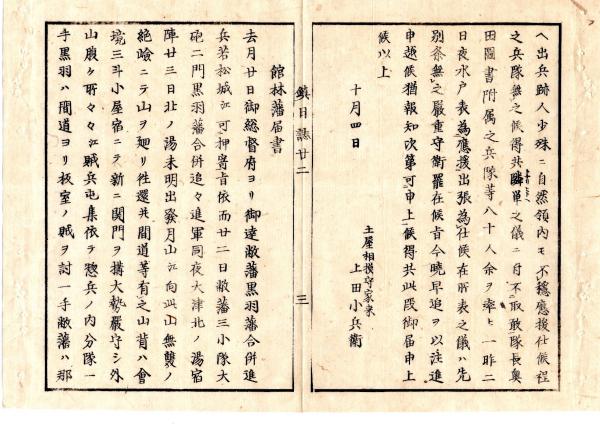 ヘ出兵跡人少殊ニ自然領内モ不穏應援仕候程
之兵隊無之候得共隣單之儀ニ付不取敢隊長奥
田圖書附属之兵隊等八十人余ヲ率ヒ一昨二
日夜水戸表為應援出張為仕候在所表之儀ハ先
別条無之嚴重守衛罷在候旨今曉早追ヲ以注進
申越候猶報知次第可申上候得共此段御届申上
候以上
十月四日
土屋相摸守家来
上田小兵衛
鎮日誌廿二
三
館林藩届書
去月廿日御総督府ヨリ御達敝藩黒羽藩合併進
兵若松城江可押寄旨依而廿二日敝藩三小隊大
砲二門黒羽藩合併追々進軍同夜大津北ノ湯宿
陣廿三日北ノ湯未明出發月山江向此山無雙ノ
絶嶮ニテ山ヲ廻リ往還共間道等有之山背ハ會
境三斗小屋宿ニテ新ニ関門ヲ構大勢嚴守シ外
山腹ケ所々々江賊兵屯集依テ惣兵ノ内分隊一
手黒羽ハ間道ヨリ板室ノ賊ヲ討一手敝藩ハ那